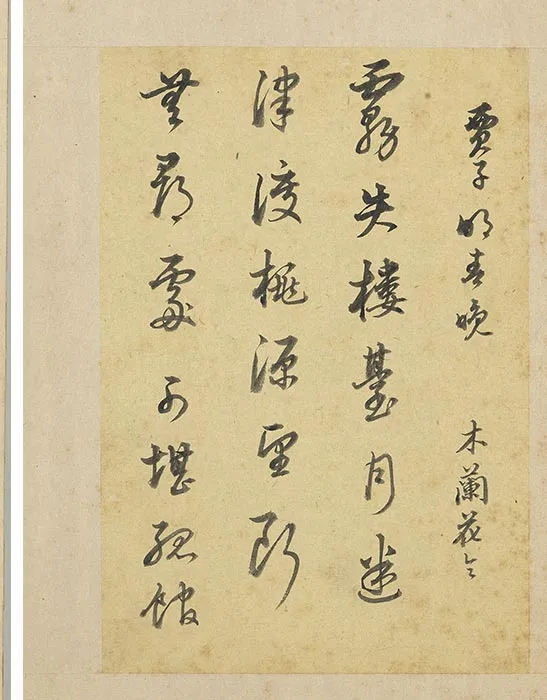 賈子明春晚 木蘭花令
霧失樓臺月迷
津渡桃源望斷
無尋處可堪孤館